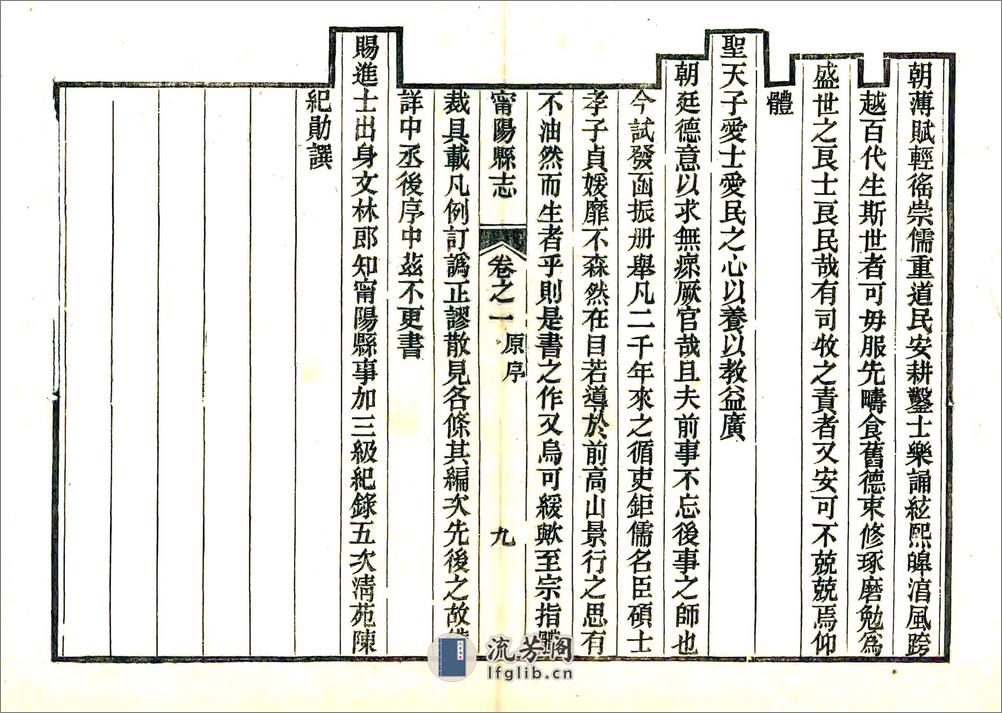 朝薄賦輕徭崇儒重道民安耕鑿士樂誦絃熙皞淯風跨
越百代生斯世者可毋服先疇食舊德束修琢磨勉為
盛世之良士良民哉有司牧之責者又安可不兢兢焉仰
體
聖天子愛士愛民之心以養以教益廣
朝廷德意以求無瘝厥官哉且夫前事不忘後事之師也
今試發函振册舉凡二千年來之循吏鉅儒名臣碩士
孝子貞媛靡不森然在目若導於前高山景行之思有
不油然而生者乎則是書之作又烏可緩歟至宗指
甯陽縣志 卷之一 原序 九
裁具載凡例訂譌正謬散見各條其編次先後之故
詳中丞後序中茲不更書
賜進士出身文林郎知甯陽縣事加三級紀錄五次清苑陳
紀勛譔
流芳閣
lfglib.cn